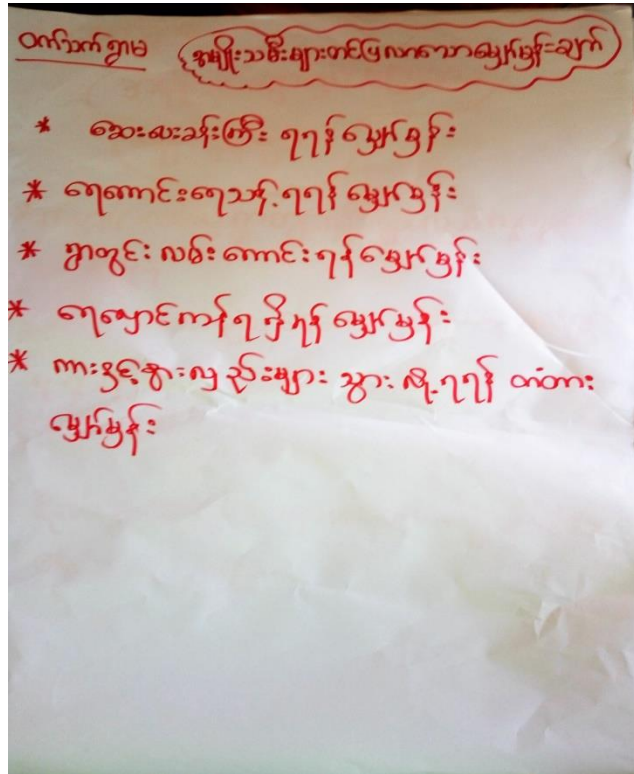 ဝက်သက်ရွာမ အမျိုးသမီးများတင်ပြလာသောမျှော်မှန်းချက်
* ဆေးပေးခန်းကြီး ရရန် မျှော်မှန်း
* ရေကောင်းရေသန့် ရရန် မျှော်မှန်း
* ရွာတွင်း လမ်း ကောင်း ရန် မျှော်မှန်း
* ရေလှောင်ကန် ရရှိရန် မျှော်မှန်း
* ကားနှင့်နွားလှည်းများ သွား လို့ ရရန် တံတား
မျှော်မှန်း